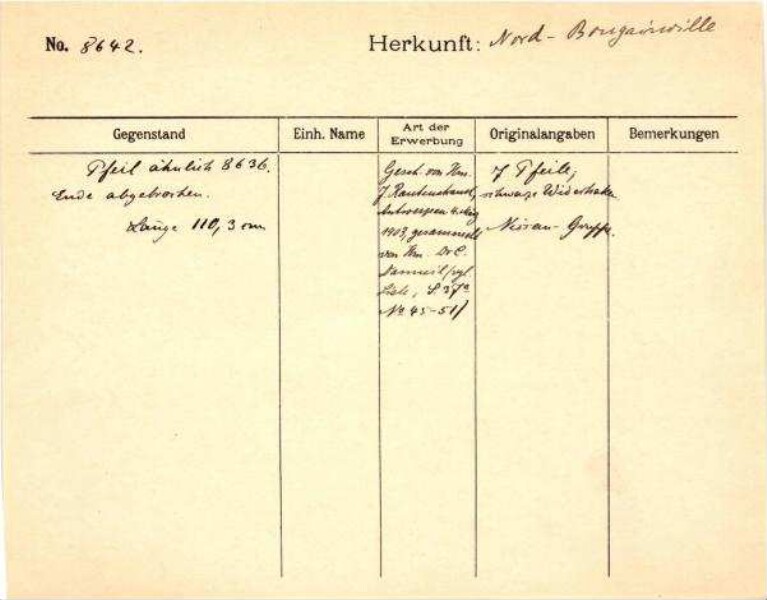 No. 8642.
Herkunft: Nord-Bougainville
Gegenstand
Einh. Name
Art der Erwerbung
Originalangaben
Bemerkungen
Pfeil ähnlich 8636.
Ende abgebrochen.
Länge 110,3 cm
Gesch. von Hrn.
J.
Antwerpen
1903, gesammelt
von Hrn. Dr C.
vgl.
Liste, S. 37a
No 45-51/
7 Pfeile,
schwarze Widerhaken
Nissan-Gruppe.